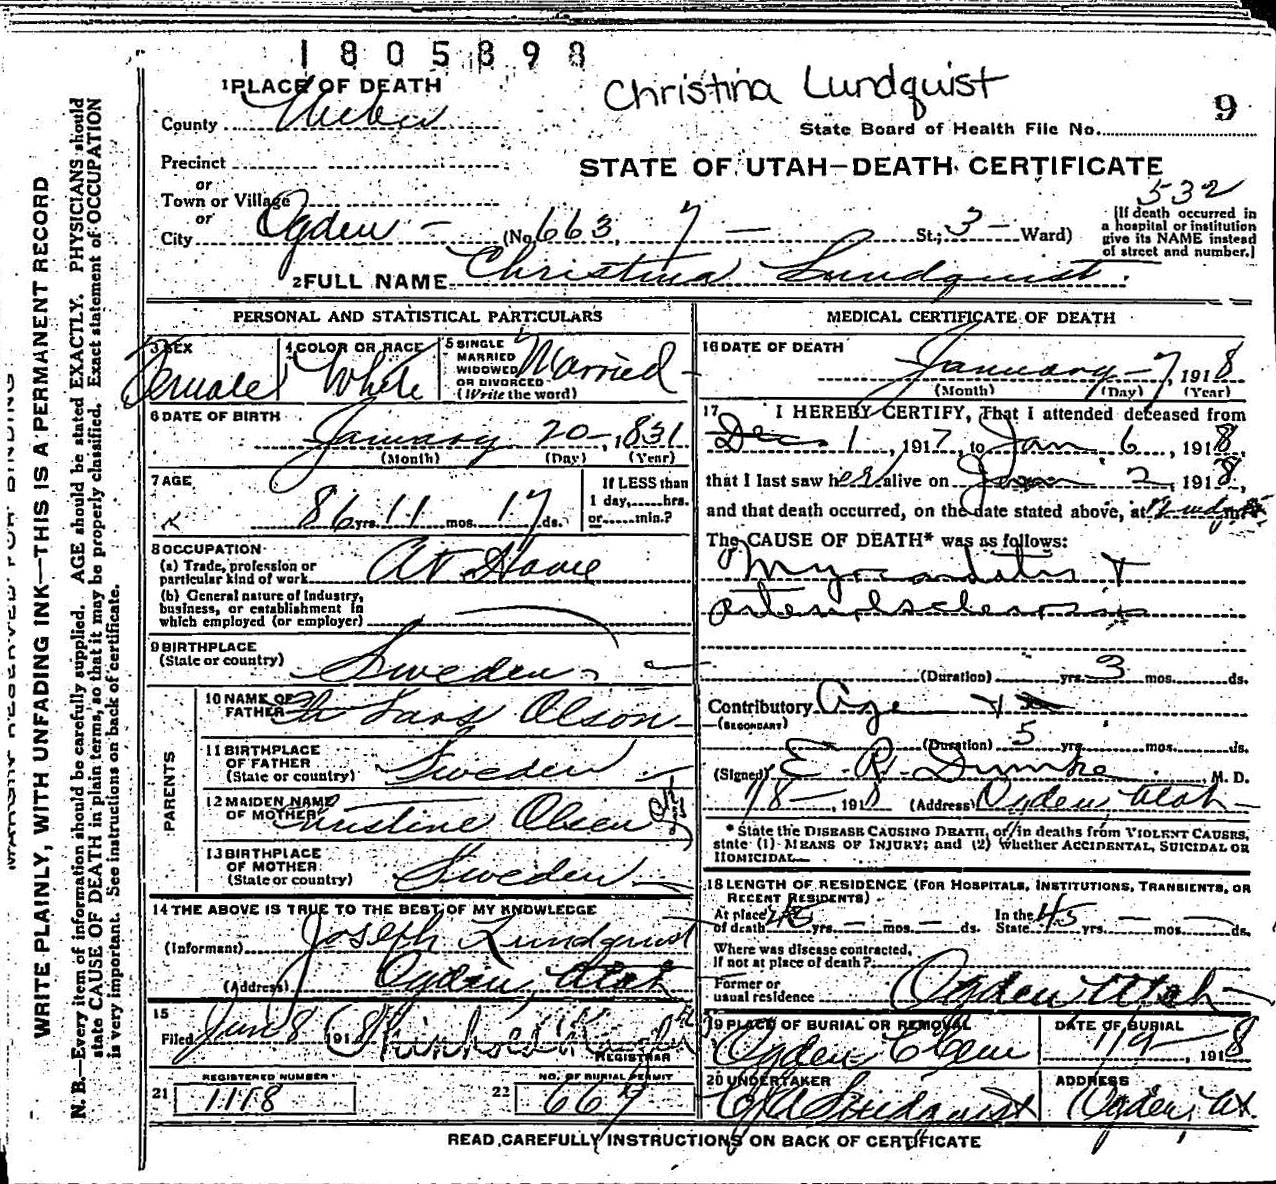 1805898
Christina Lundquist
9
1 PLACE OF DEATH
County Weber
State Board of Health File No.
Precinct
STATE OF UTAH—DEATH CERTIFICATE
or
532
Town or Village
or
City Ogden — (No. 663, 7 — St.; 3 — Ward)
[If death occurred in
a hospital or institution
give its NAME instead
of street and number.]
2 FULL NAME Christina Lundquist.
PERSONAL AND STATISTICAL PARTICULARS
3 SEX
Female
4 COLOR OR RACE
White
5 SINGLE
MARRIED
WIDOWED
OR DIVORCED
(Write the word)
Married
6 DATE OF BIRTH
January 20 — , 1831
(Month) (Day) (Year)
7 AGE
86 yrs. 11 mos. 17 ds.
If LESS than
1 day, hrs.
or min.?
8 OCCUPATION
(a) Trade, profession or
particular kind of work At Home
(b) General nature of Industry,
business, or establishment in
which employed (or employer)
9 BIRTHPLACE
(State or country) Sweden
PARENTS
10 NAME OF
FATHER Lars Olson
11 BIRTHPLACE
OF FATHER
(State or country) Sweden
12 MAIDEN NAME
OF MOTHER Christine Olsen
13 BIRTHPLACE
OF MOTHER
(State or country) Sweden
14 THE ABOVE IS TRUE TO THE BEST OF MY KNOWLEDGE
(Informant) Joseph Lundquist
(Address) Ogden, Utah
15
Filed Jan 8 1918
REGISTRAR
REGISTERED NUMBER
21 1118
NO. OF BURIAL PERMIT
22 667
MEDICAL CERTIFICATE OF DEATH
16 DATE OF DEATH
January — 7, 1918
(Month) (Day) (Year)
17 I HEREBY CERTIFY, That I attended deceased from
Dec 1, 1917, to Jan 6, 1918,
that I last saw her alive on Jan 2, 1918,
and that death occurred, on the date stated above, at m.
The CAUSE OF DEATH* was as follows:
Myocarditis &
arteriosclerosis
(Duration) yrs. 3 mos. ds.
Contributory Age
(SECONDARY)
(Duration) 5 yrs. mos. ds.
(Signed) E. R. Dumke M. D.
1/8 —, 1918 (Address) Ogden Utah
* State the DISEASE CAUSING DEATH, or, in deaths from VIOLENT CAUSES,
state (1) MEANS OF INJURY; and (2) whether ACCIDENTAL, SUICIDAL OR
HOMICIDAL.
18 LENGTH OF RESIDENCE (FOR HOSPITALS, INSTITUTIONS, TRANSIENTS, OR
RECENT RESIDENTS)
At place
of death 45 yrs. — mos. — ds.
In the
State 45 yrs. — mos. — ds.
Where was disease contracted,
if not at place of death?
Former or
usual residence Ogden Utah
19 PLACE OF BURIAL OR REMOVAL
Ogden Cem
DATE OF BURIAL
1/9 — , 1918
20 UNDERTAKER
Lindquist
ADDRESS
Ogden, Ut.
READ CAREFULLY INSTRUCTIONS ON BACK OF CERTIFICATE
MARGIN RESERVED FOR BINDING
WRITE PLAINLY, WITH UNFADING INK—THIS IS A PERMANENT RECORD
N. B.—Every item of information should be carefully supplied. AGE should be stated EXACTLY. PHYSICIANS should
state CAUSE OF DEATH in plain terms, so that it may be properly classified. Exact statement of OCCUPATION
is very important. See instructions on back of certificate.